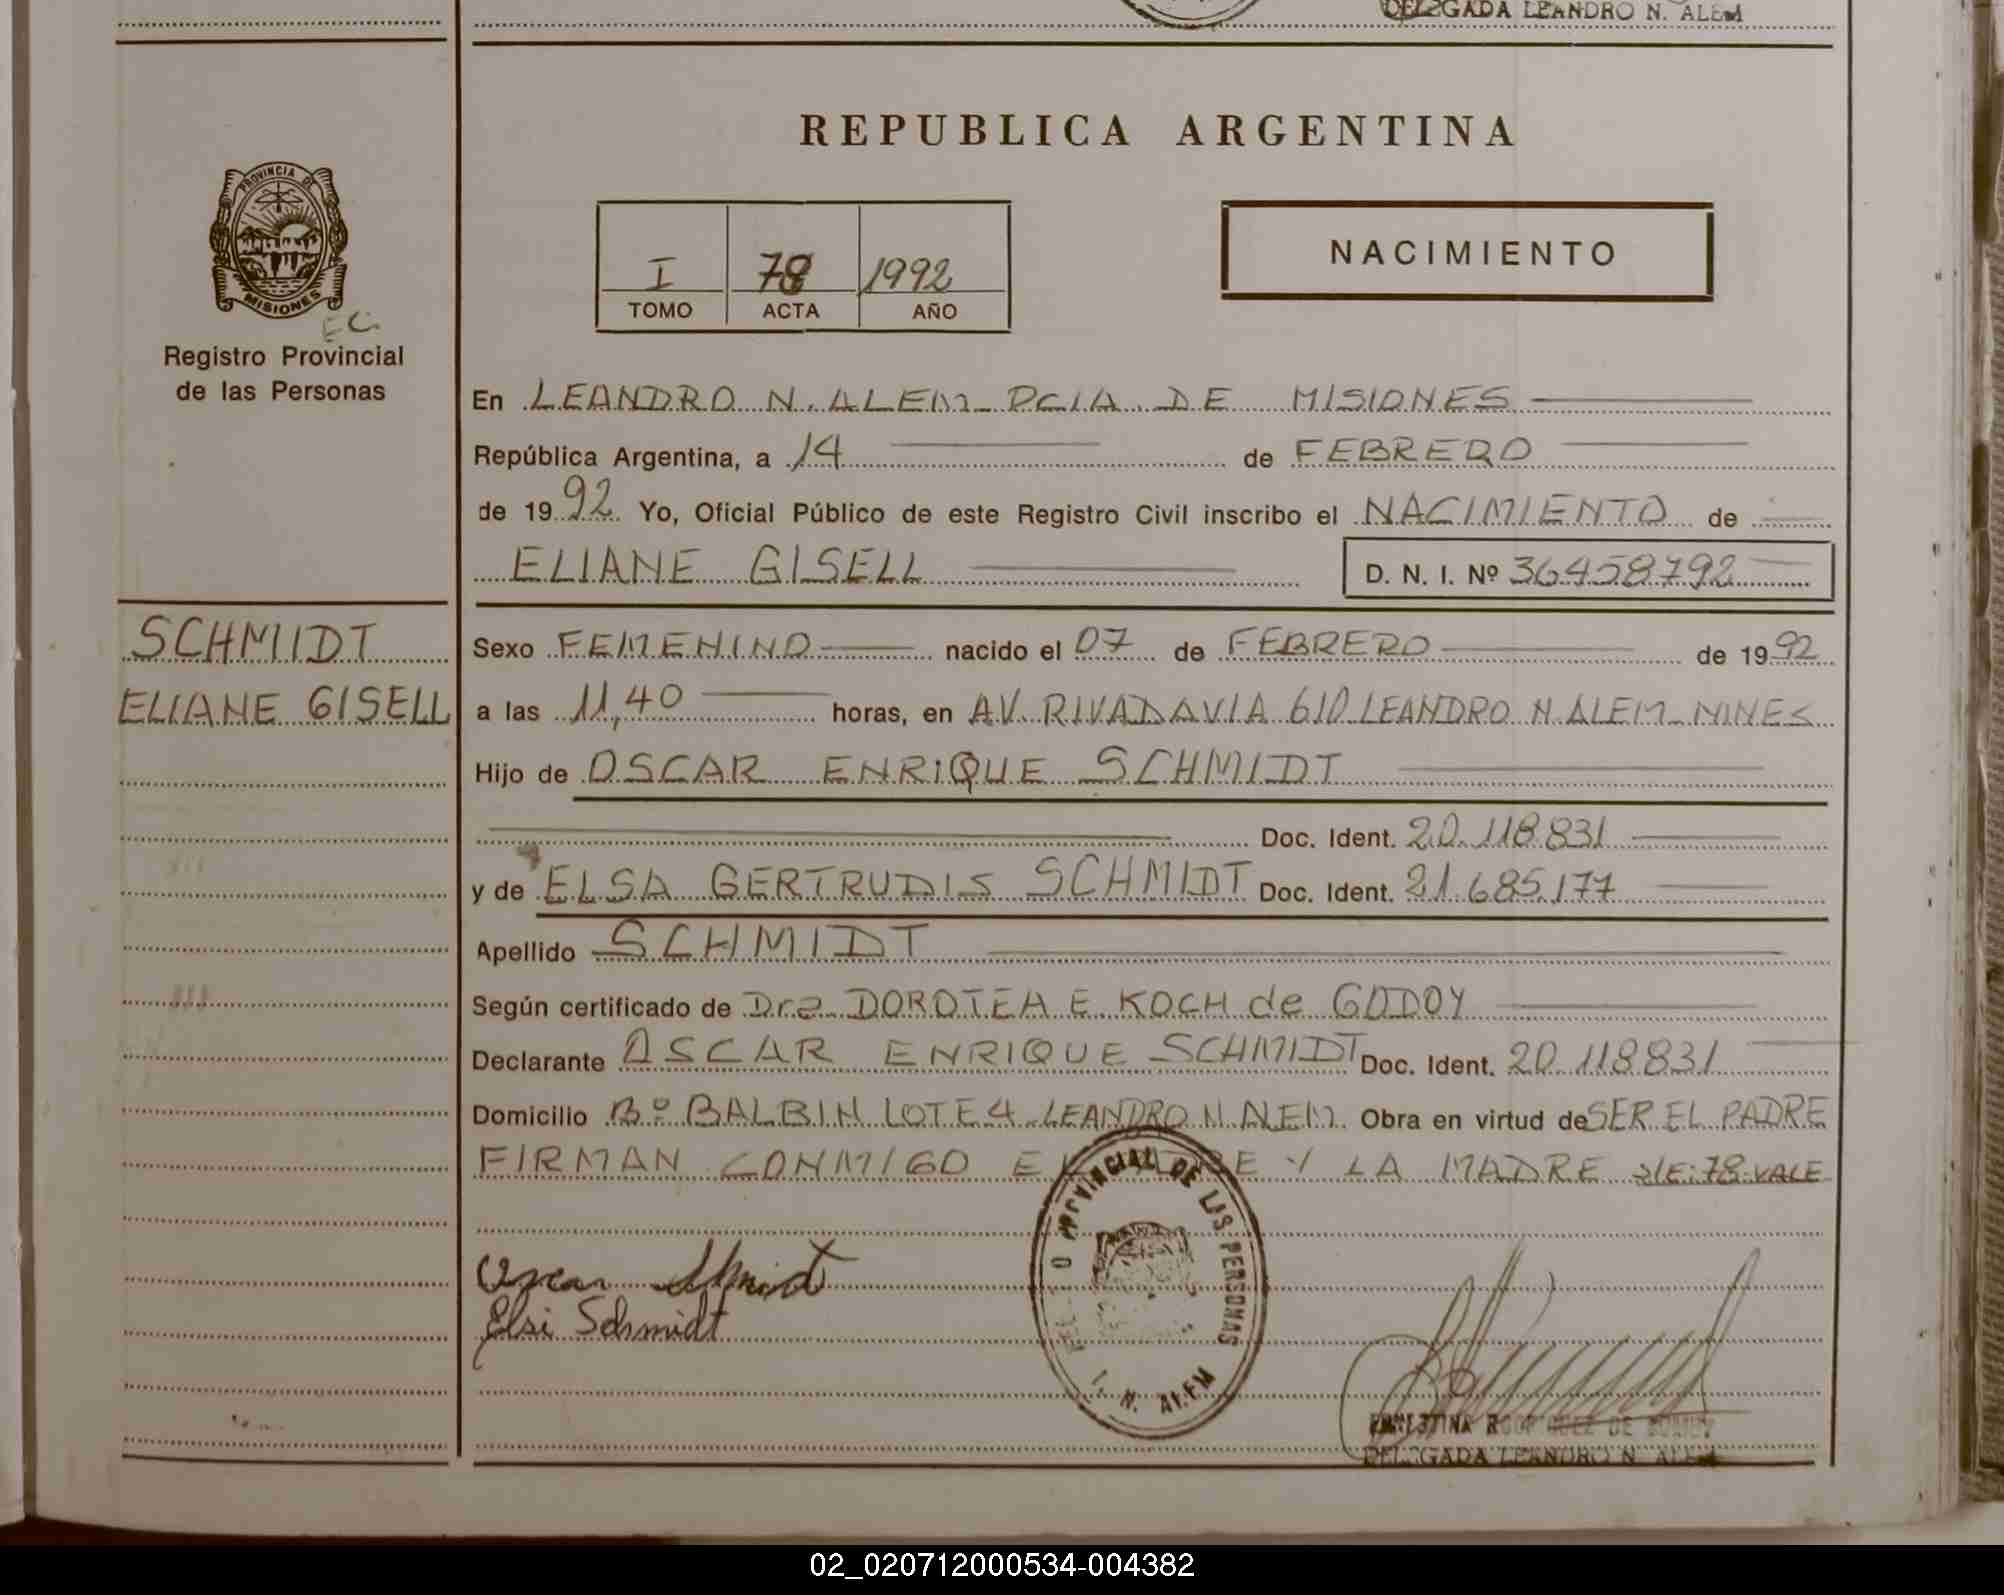 DELEGADA LEANDRO N. ALEM
REPUBLICA ARGENTINA
PROVINCIA DE
MISIONES
Registro Provincial
de las Personas
I 78 1992
TOMO ACTA AÑO
NACIMIENTO
En LEANDRO N. ALEM PCIA. DE MISIONES
República Argentina, a 14 de FEBRERO
de 1992 Yo, Oficial Público de este Registro Civil inscribo el NACIMIENTO de
ELIANE GISELL D. N. I. Nº 36458792
SCHMIDT
ELIANE GISELL
Sexo FEMENINO nacido el 07 de FEBRERO de 1992
a las 11,40 horas, en AV. RIVADAVIA 610 LEANDRO N. ALEM MNES
Hijo de OSCAR ENRIQUE SCHMIDT
Doc. Ident. 20.118.831
y de ELSA GERTRUDIS SCHMIDT Doc. Ident. 21.685.177
Apellido SCHMIDT
Según certificado de Dra DOROTEA E. KOCH de GODOY
Declarante OSCAR ENRIQUE SCHMIDT Doc. Ident. 20.118831
Domicilio Bº BALBIN LOTE 4 LEANDRO N. ALEM. Obra en virtud de SER EL PADRE
FIRMAN CONMIGO EL PADRE Y LA MADRE s/E: 78 VALE
PROVINCIAL DE LAS PERSONAS
L. N. ALEM
Oscar Shmidt
Elsi Schmidt
ERNESTINA RODRIGUEZ DE
DELEGADA LEANDRO N. ALEM
02_020712000534-004382